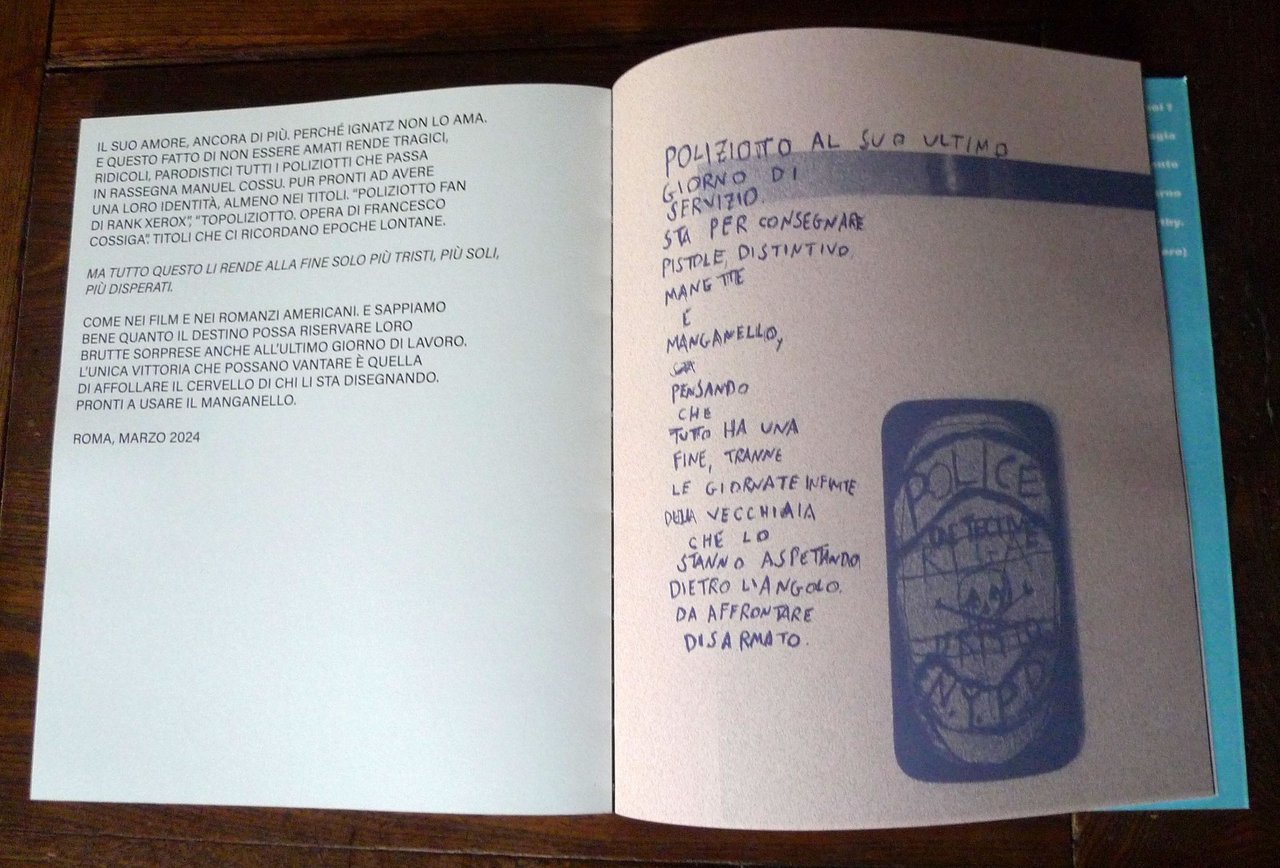 IL SUO AMORE, ANCORA DI PIÙ. PERCHÉ IGNATZ NON LO AMA.
E QUESTO FATTO DI NON ESSERE AMATI RENDE TRAGICI,
RIDICOLI, PARODISTICI TUTTI I POLIZIOTTI CHE PASSA
IN RASSEGNA MANUEL COSSU. PUR PRONTI AD AVERE
UNA LORO IDENTITÀ, ALMENO NEI TITOLI. “POLIZIOTTO FAN
DI RANK XEROX”, “TOPOLIZIOTTO. OPERA DI FRANCESCO
COSSIGA”. TITOLI CHE CI RICORDANO EPOCHE LONTANE.
MA TUTTO QUESTO LI RENDE ALLA FINE SOLO PIÙ TRISTI, PIÙ SOLI,
PIÙ DISPERATI.
COME NEI FILM E NEI ROMANZI AMERICANI. E SAPPIAMO
BENE QUANTO IL DESTINO POSSA RISERVARE LORO
BRUTTE SORPRESE ANCHE ALL’ULTIMO GIORNO DI LAVORO.
L’UNICA VITTORIA CHE POSSANO VANTARE È QUELLA
DI AFFOLLARE IL CERVELLO DI CHI LI STA DISEGNANDO.
PRONTI A USARE IL MANGANELLO.
ROMA, MARZO 2024
POLIZIOTTO AL SUO ULTIMO
GIORNO DI
SERVIZIO.
STA PER CONSEGNARE
PISTOLE, DISTINTIVO,
MANETTE
E
MANGANELLO,
STA
PENSANDO
CHE
TUTTO HA UNA
FINE, TRANNE
LE GIORNATE INFINITE
DELLA VECCHIAIA
CHE LO
STANNO ASPETTANDO
DIETRO L'ANGOLO.
DA AFFRONTARE
DISARMATO.
POLICE
DETECTIVE
NYPD